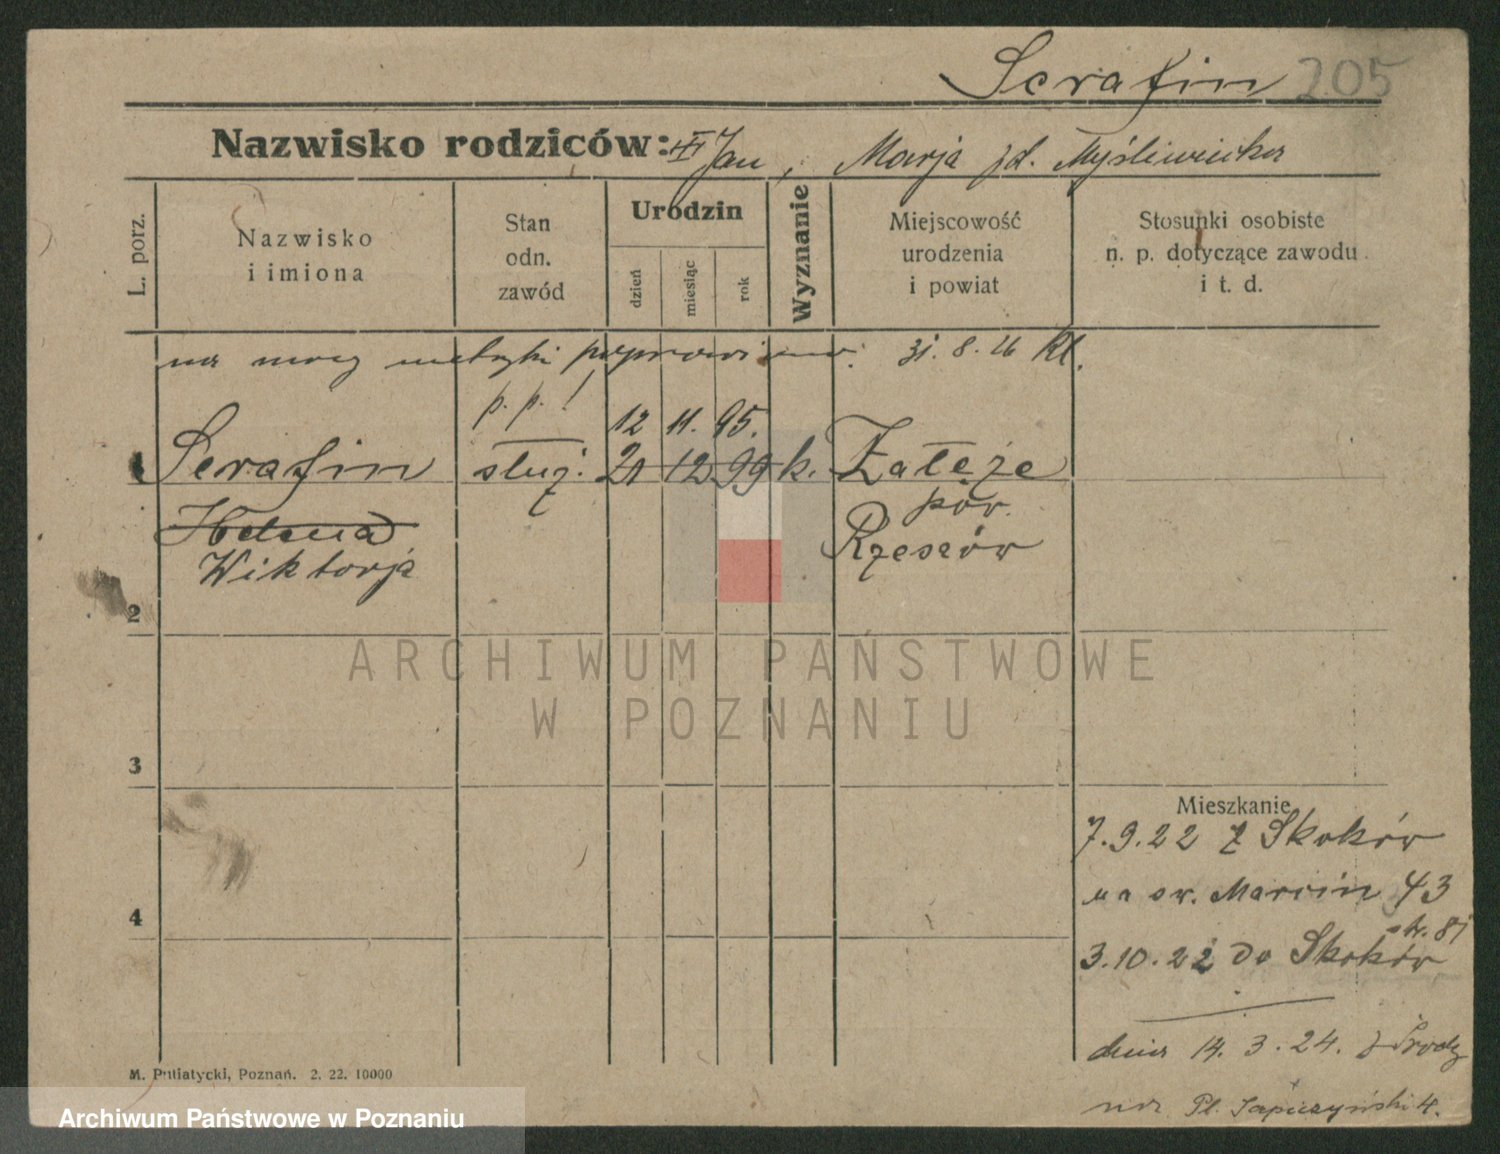 Serafin 205
Nazwisko rodziców: Jan, Marja zd. Myśliwiecka
L. porz.
Nazwisko i imiona
Stan odn. zawód
Urodzin
dzień
miesiąc
rok
Wyznanie
Miejscowość urodzenia i powiat
Stosunki osobiste n. p. dotyczące zawodu i t. d.
na mocy metryki poprawiono. 31. 8. 26 Kl.
p. p. ! 12 11. 95.
1 Serafin służ. 21 12 99 k. Załęże
pow.
Helena Rzeszów
Wiktorja
2
3
4
Mieszkanie
7.9.22 z Skoków
na św. Marcin 43
str. 81
3.10.22 do Skoków
dnia 14. 3. 24. z Środy
na Pl. Sapieżyński 4.
M. Putiatycki, Poznań. 2. 22. 10000
ARCHIWUM PAŃSTWOWE
W POZNANIU
Archiwum Państwowe w Poznaniu